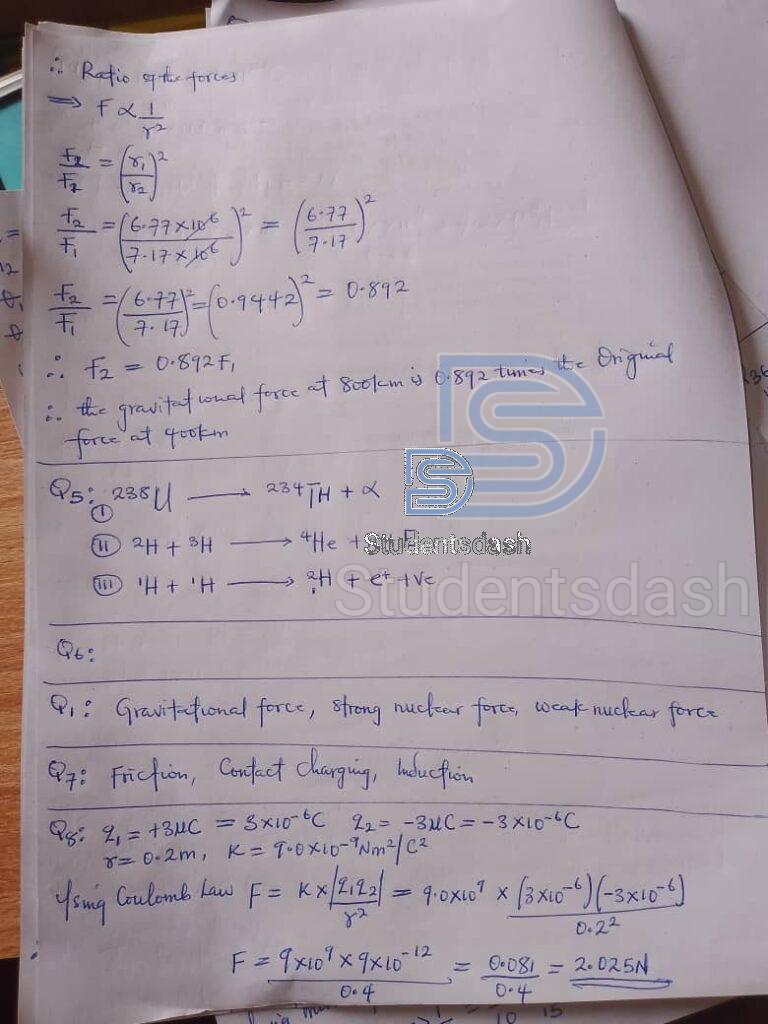 ∴ Ratio of the forces
⇒ F ∝ 1/r²
F₂/F₂ = (r₁/r₂)²
F₂/F₁ = (6.77×10⁶/7.17×10⁶)² = (6.77/7.17)²
F₂/F₁ = (6.77/7.17)² = (0.9442)² = 0.892
∴ F₂ = 0.892F₁
∴ the gravitational force at 800km is 0.892 times the Original
force at 400km
Q5: ²³⁸U → ²³⁴TH + α
(I)
(II) ²H + ³H → ⁴He +
(III) ¹H + ¹H → ²H + e⁺ + Ve
Studentsdash
Studentsdash
Q6:
Q1: Gravitational force, strong nuclear force, weak nuclear force
Q7: Friction, Contact charging, Induction
Q8: q₁ = +3μC = 3×10⁻⁶C q₂ = -3μC = -3×10⁻⁶C
r = 0.2m, K = 9.0×10⁻⁹Nm²/C²
Using Coulomb Law F = K×|q₁q₂|/r² = 9.0×10⁹ × (3×10⁻⁶)(-3×10⁻⁶)/0.2²
F = 9×10⁹ × 9×10⁻¹²/0.4 = 0.081/0.4 = 2.025N